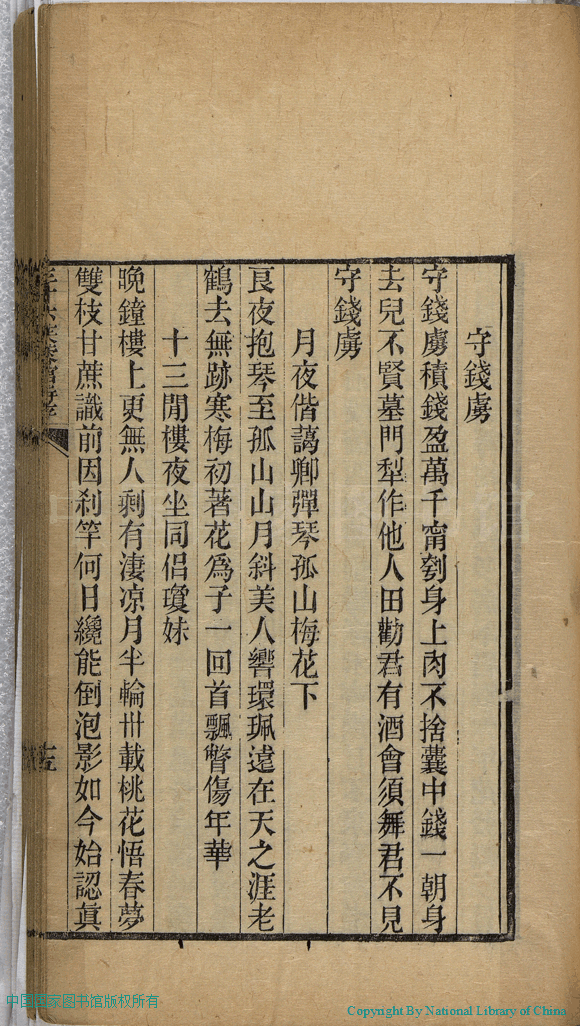 守錢虜
守錢虜積錢盈萬千甯剜身上肉不捨囊中錢一朝身
去兒不賢墓門犁作他人田勸君有酒會須舞君不見
守錢虜
月夜偕藹卿彈琴孤山梅花下
良夜抱琴至孤山山月斜美人響環珮遠在天之涯老
鶴去無跡寒梅初著花爲子一回首飄瞥傷年華
十三閒樓夜坐同侶瓊妹
晚鐘樓上更無人剩有淒凉月半輪卅載桃花悟春夢
雙枝甘蔗識前因刹竿何日纔能倒泡影如今始認眞
中国国家图书馆版权所有
Copyright By National Library of China